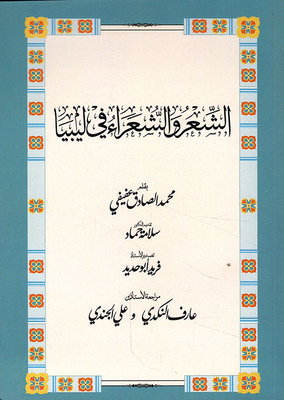 الشِّعرُ والشُّعَرَاءُ في ليبيَا
بقلم
محمد الصادق عفيفي
سلامة حماد
تصدير الأستاذ
فريد أبو حديد
مراجعة الأستاذين
عارف النكدي و علي الجندي